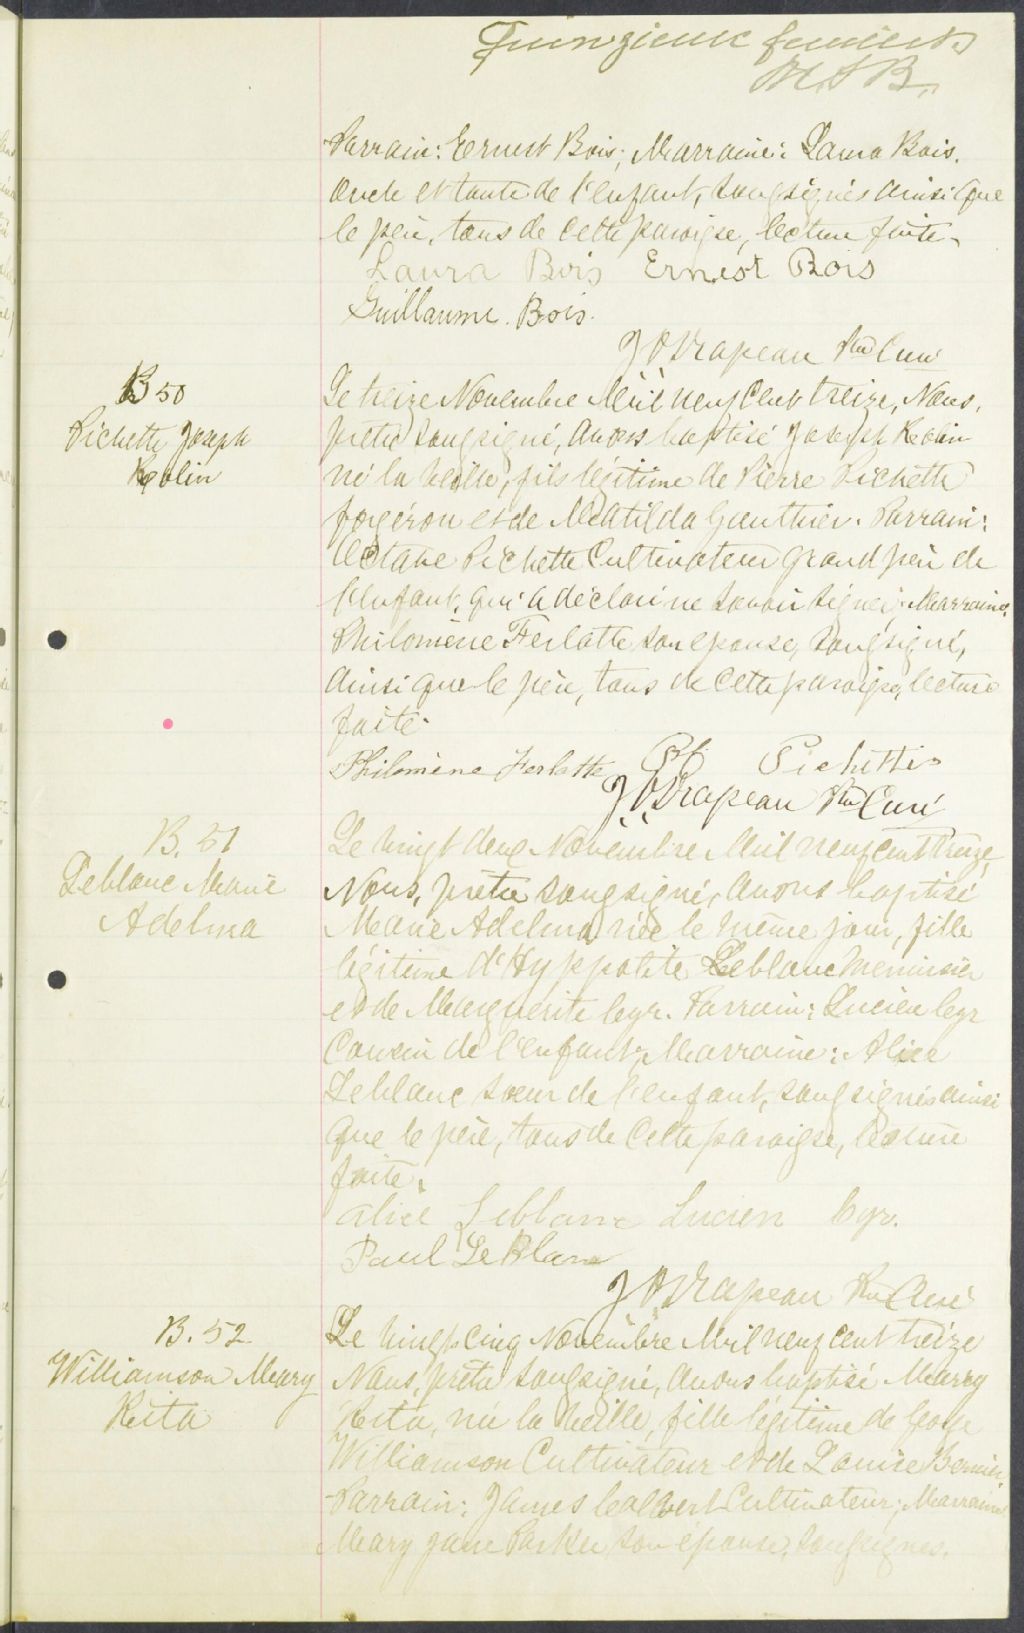 Quinzieme feuillet
Parrain: Ernest Bois; Marraine: Laura Bois.
oncle et tante de l'enfant, soussignés ainsi que
le père, tous de cette paroisse, lecture faite.
Laura Bois Ernest Bois
Guillaume Bois.
J O Drapeau Ptre Curé
B 50
Pichette Joseph
Le treize Novembre Mil neuf Cent treize, Nous,
prêtre soussigné, avons baptisé Joseph
né la veille, fils légitime de Pierre Pichette
forgéron et de Matilda Gauthier. Parrain:
Octave Pichette Cultivateur grand père de
l'enfant, qui a déclaré ne savoir signer; Marraine:
Philomène Ferlatte son épouse, soussigné,
ainsi que le père, tous de cette paroisse, lecture
faite.
Philomène Ferlatte Pichette
J. O. Drapeau Ptre Curé
B. 51
Leblanc Marie
Adelma
Le vingt deux Novembre Mil neuf cent treize,
Nous, prêtre soussigné, avons baptisé
Marie Adelma née le même jour, fille
légitime d'Hyppolite Leblanc menuisier
et de Marguerite Cyr. Parrain: Lucien Cyr
Cousin de l'enfant; Marraine: Alice
Leblanc soeur de l'enfant, soussignés ainsi
que le père, tous de cette paroisse, lecture
faite.
Alice Leblanc Lucien Cyr.
Paul LeBlanc
J. O. Drapeau Ptre Curé
B. 52
Williamson Mary
Rita
Le vingt cinq Novembre Mil neuf cent treize
Nous, prêtre soussigné, avons baptisé Mary
Rita, née la veille, fille légitime de George
Williamson Cultivateur et de Louise Bernier.
Parrain: James Cultivateur; Marraine
Mary Jane son épouse, soussignés.